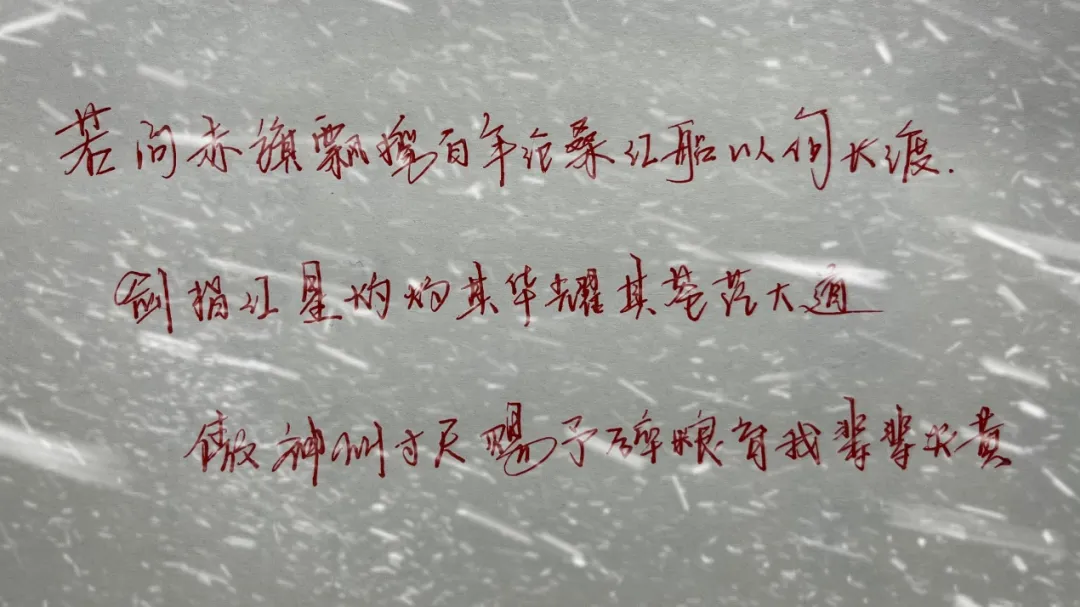 若问赤旗飘飘百年沧桑红船以何长渡.
剑指红星灼灼其华耀其苍茫大道
傲神州寸天赐予碎粮育我辈辈炎黄